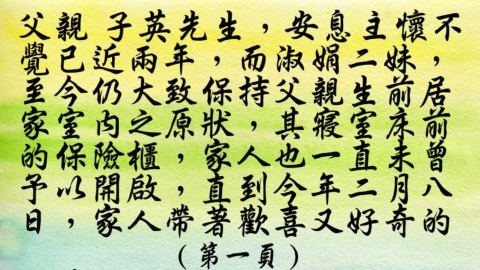 父親 子英先生，安息主懷不
覺已近兩年，而淑娟二妹，
至今仍大致保持父親生前居
家室內之原狀，其寢室床前
的保險櫃，家人也一直未曾
予以開啟，直到今年二月八
日，家人帶著歡喜又好奇的
（第一頁）